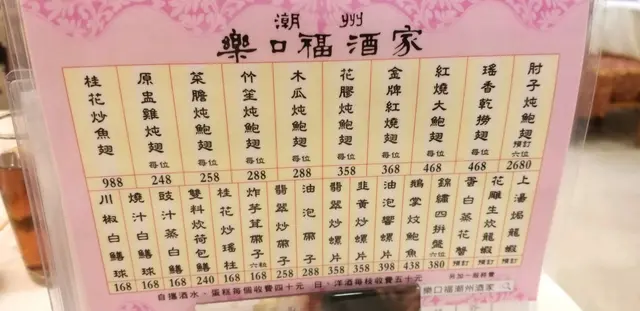 潮州
樂口福酒家
桂花炒魚翅 988
原盅雞炖翅 每位 248
菜膽炖鮑翅 每位 258
竹笙炖鮑翅 每位 288
木瓜炖鮑翅 每位 288
花膠炖鮑翅 每位 358
金牌紅燒翅 每位 368
紅燒大鮑翅 每位 468
瑤香乾撈翅 每位 468
肘子炖鮑翅 預訂 六位 2680
川椒白鱔球 168
燒汁白鱔球 168
豉汁蒸白鱔 168
雙料炊荷包鱔 240
桂花炒瑤柱 168
炸芋茸帶子 六粒 168
翡翠炒帶子 258
油泡帶子 288
翡翠炒螺片 358
韮黃油螺片 358
油泡響螺片 398
鵝掌炆鮑魚 438
錦繡四拼盤 六位 380
蛋白蒸花蟹 預訂
花雕生炊龍蝦 預訂
上湯焗龍蝦 預訂
自攜酒水、蛋糕每個收費四十元 日、洋酒每枝收費五十元 另加一服務費
樂口福潮州酒家